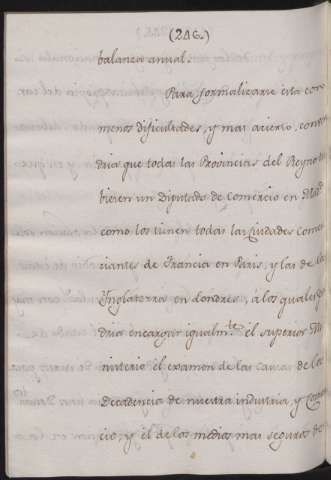 (246.)
balanza anual.
Para formalizarse esta con
menos dificultades, y mas acierto, conven
dria que todas las Provincias del Reyno tu
biesen un Diputado de Comercio en Mad
como los tienen todas las Ciudades Comer
ciantes de Francia en Paris, y las de la
Ynglaterra en Londres, á los quales po
dria encargar igualm.te el superior Mi
nisterio el examen de las causas de la
Decadencia de nuestra industria, y Comer
cio, y el de los medios mas seguros de